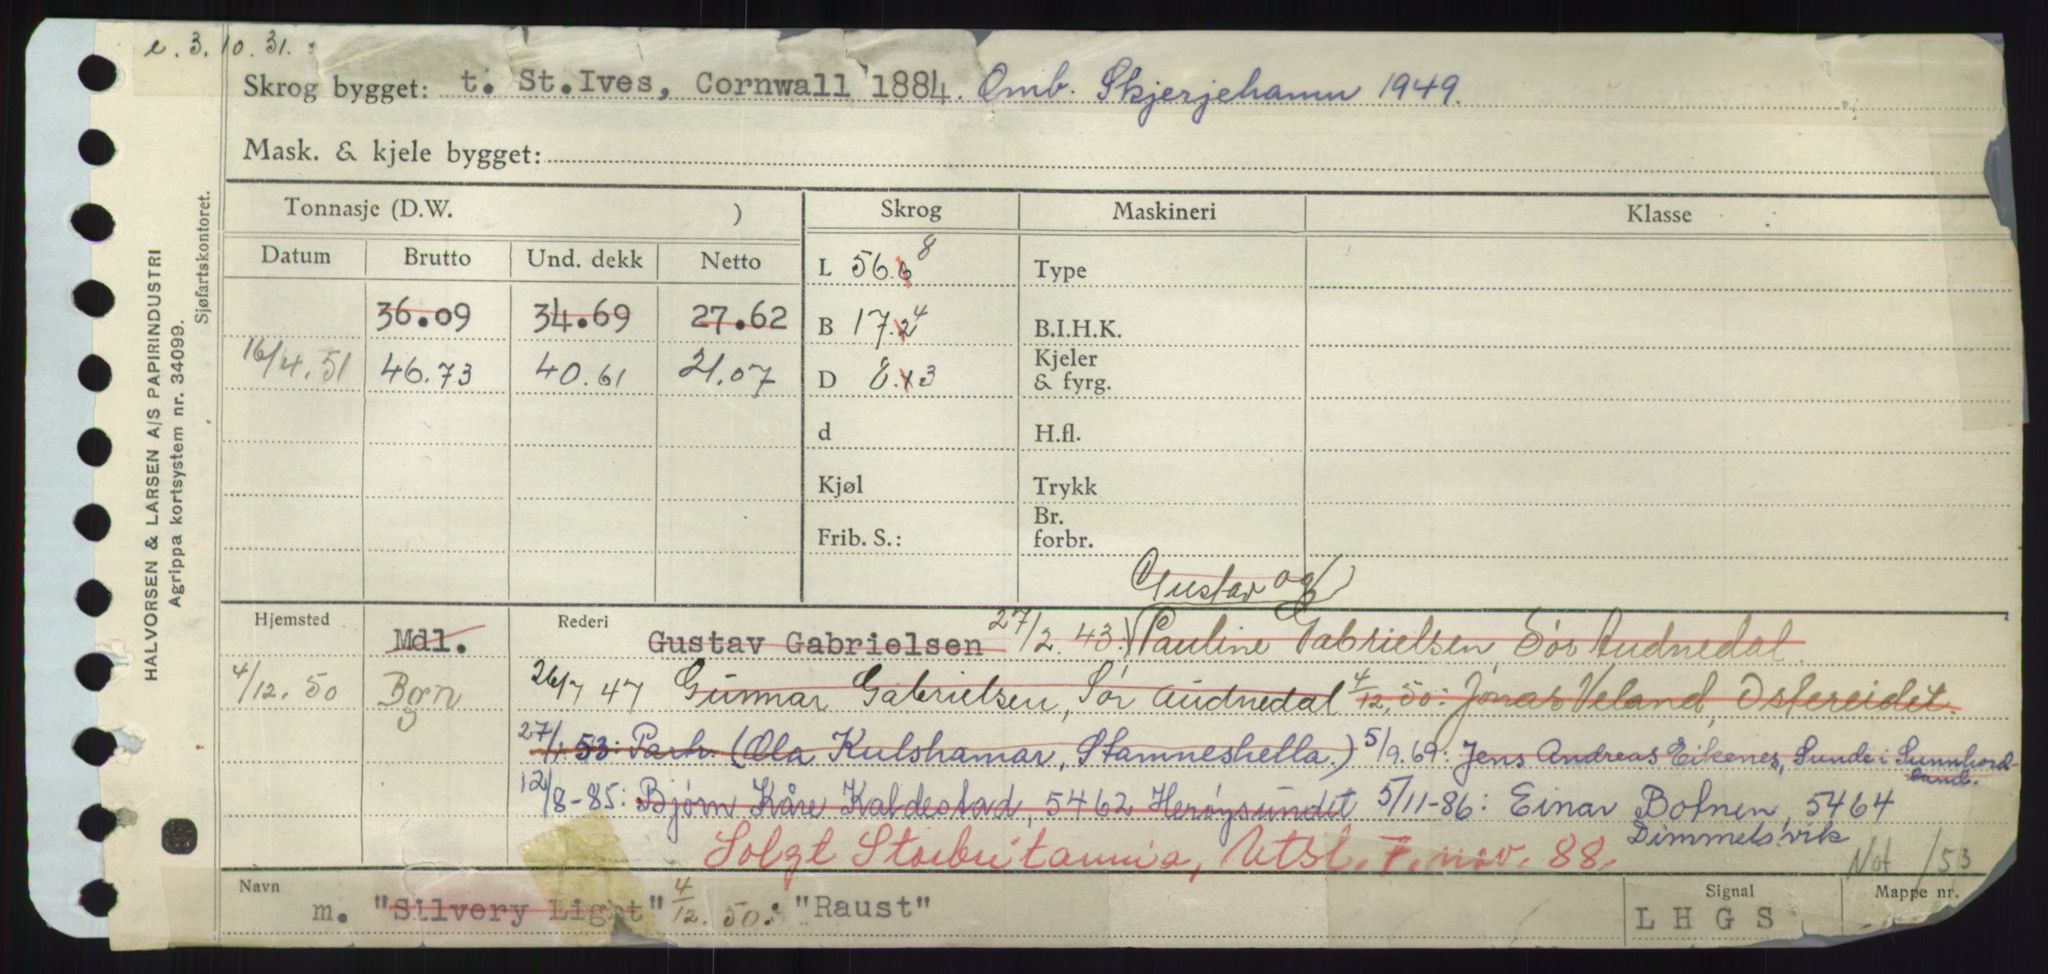 e. 3.10.31.
Skrog bygget: t. St.Ives, Cornwall 1884. Omb. Skjerjehamn 1949.
Mask. & kjele bygget:
Tonnasje (D.W. ) Skrog Maskineri Klasse
Datum Brutto Und. dekk Netto
L 56.6 8 Type
36.09 34.69 27.62 B 17.2 4 B.I.H.K.
16/4.51 46.73 40.61 21.07 D 8. 3 Kjeler & fyrg.
d H.fl.
Kjøl Trykk
Frib. S.: Br. forbr.
Gustav og
Hjemsted Mdl. Rederi Gustav Gabrielsen 27/2.43: Pauline Gabrielsen Sør Audnedal.
4/12.50 Bgn 26/7 47 Gunnar Gabrielsen, Sør Audnedal 4/12.50: Jonas Veland, Ostereidet.
27/1.53: Partr. (Ola Kulshamar, Stamneshella.) 5/9.69: Jens Andreas Eikenes, Sunde i Sunnhordland.
12/8-85: Bjørn Kåre Kaldestad, 5462 Herøysundet 5/11-86: Einar Bofnen, 5464
Dimmelsvik
Solgt Storbritannia, Utsl. 7. nov. 88.
Not /53
Navn Signal Mappe nr.
m. "Silvery Light" 4/12.50: "Raust" LHGS
HALVORSEN & LARSEN A/S PAPIRINDUSTRI
Agrippa kortsystem nr. 34099.
Sjøfartskontoret.